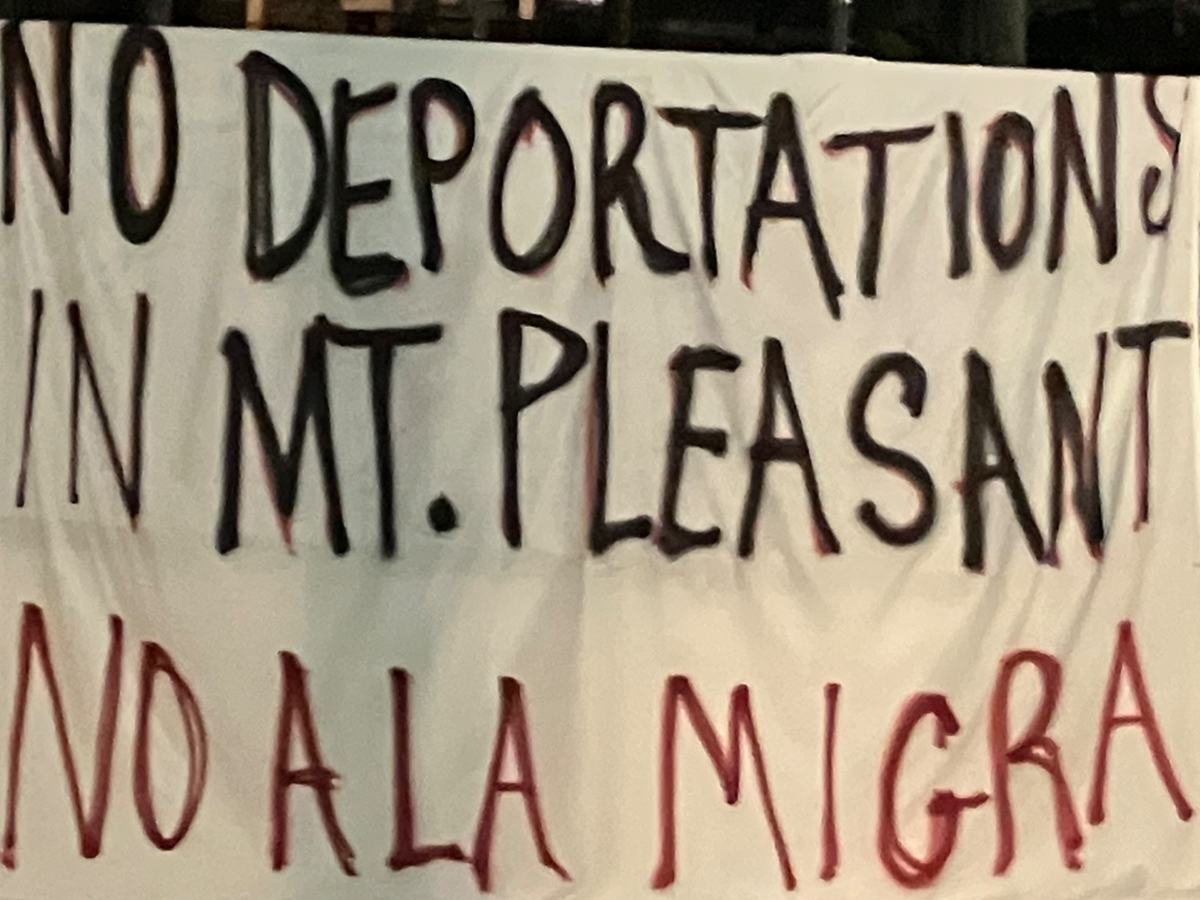 NO DEPORTATIONS
IN MT. PLEASANT
NO A LA MIGRA